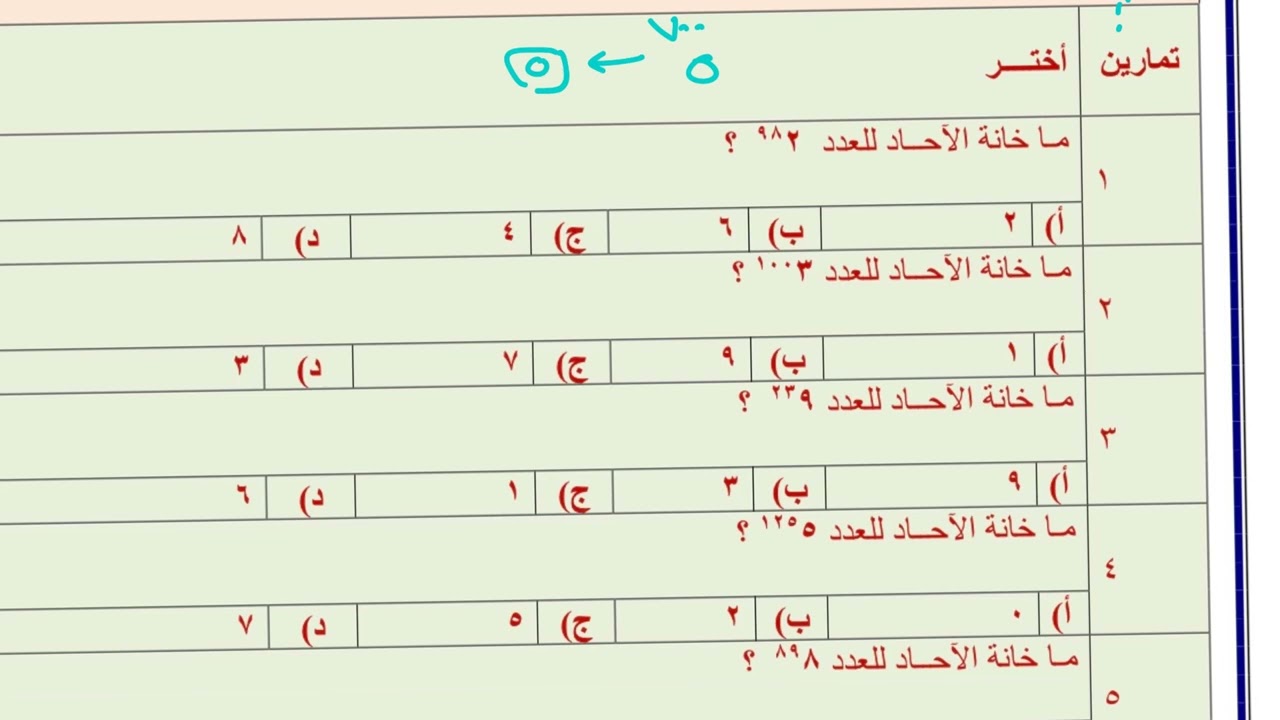 ٧٠٠
٥ ← ٥
تمارين أختـــر
١ مـا خانة الآحـاد للعدد ٩٨٢ ؟
أ) ٢ ب) ٦ ج) ٤ د) ٨
٢ مـا خانة الآحـاد للعدد ١٠٠٣ ؟
أ) ١ ب) ٩ ج) ٧ د) ٣
٣ مـا خانة الآحـاد للعدد ٢٣٩ ؟
أ) ٩ ب) ٣ ج) ١ د) ٦
٤ مـا خانة الآحـاد للعدد ١٢٥٥ ؟
أ) ٠ ب) ٢ ج) ٥ د) ٧
٥ مـا خانة الآحـاد للعدد ٨٩٨ ؟